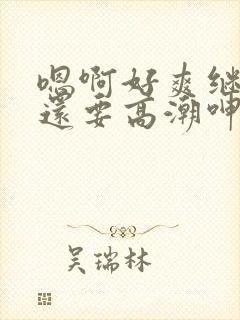 嗯啊好爽继
还要高潮呻
吴瑞林